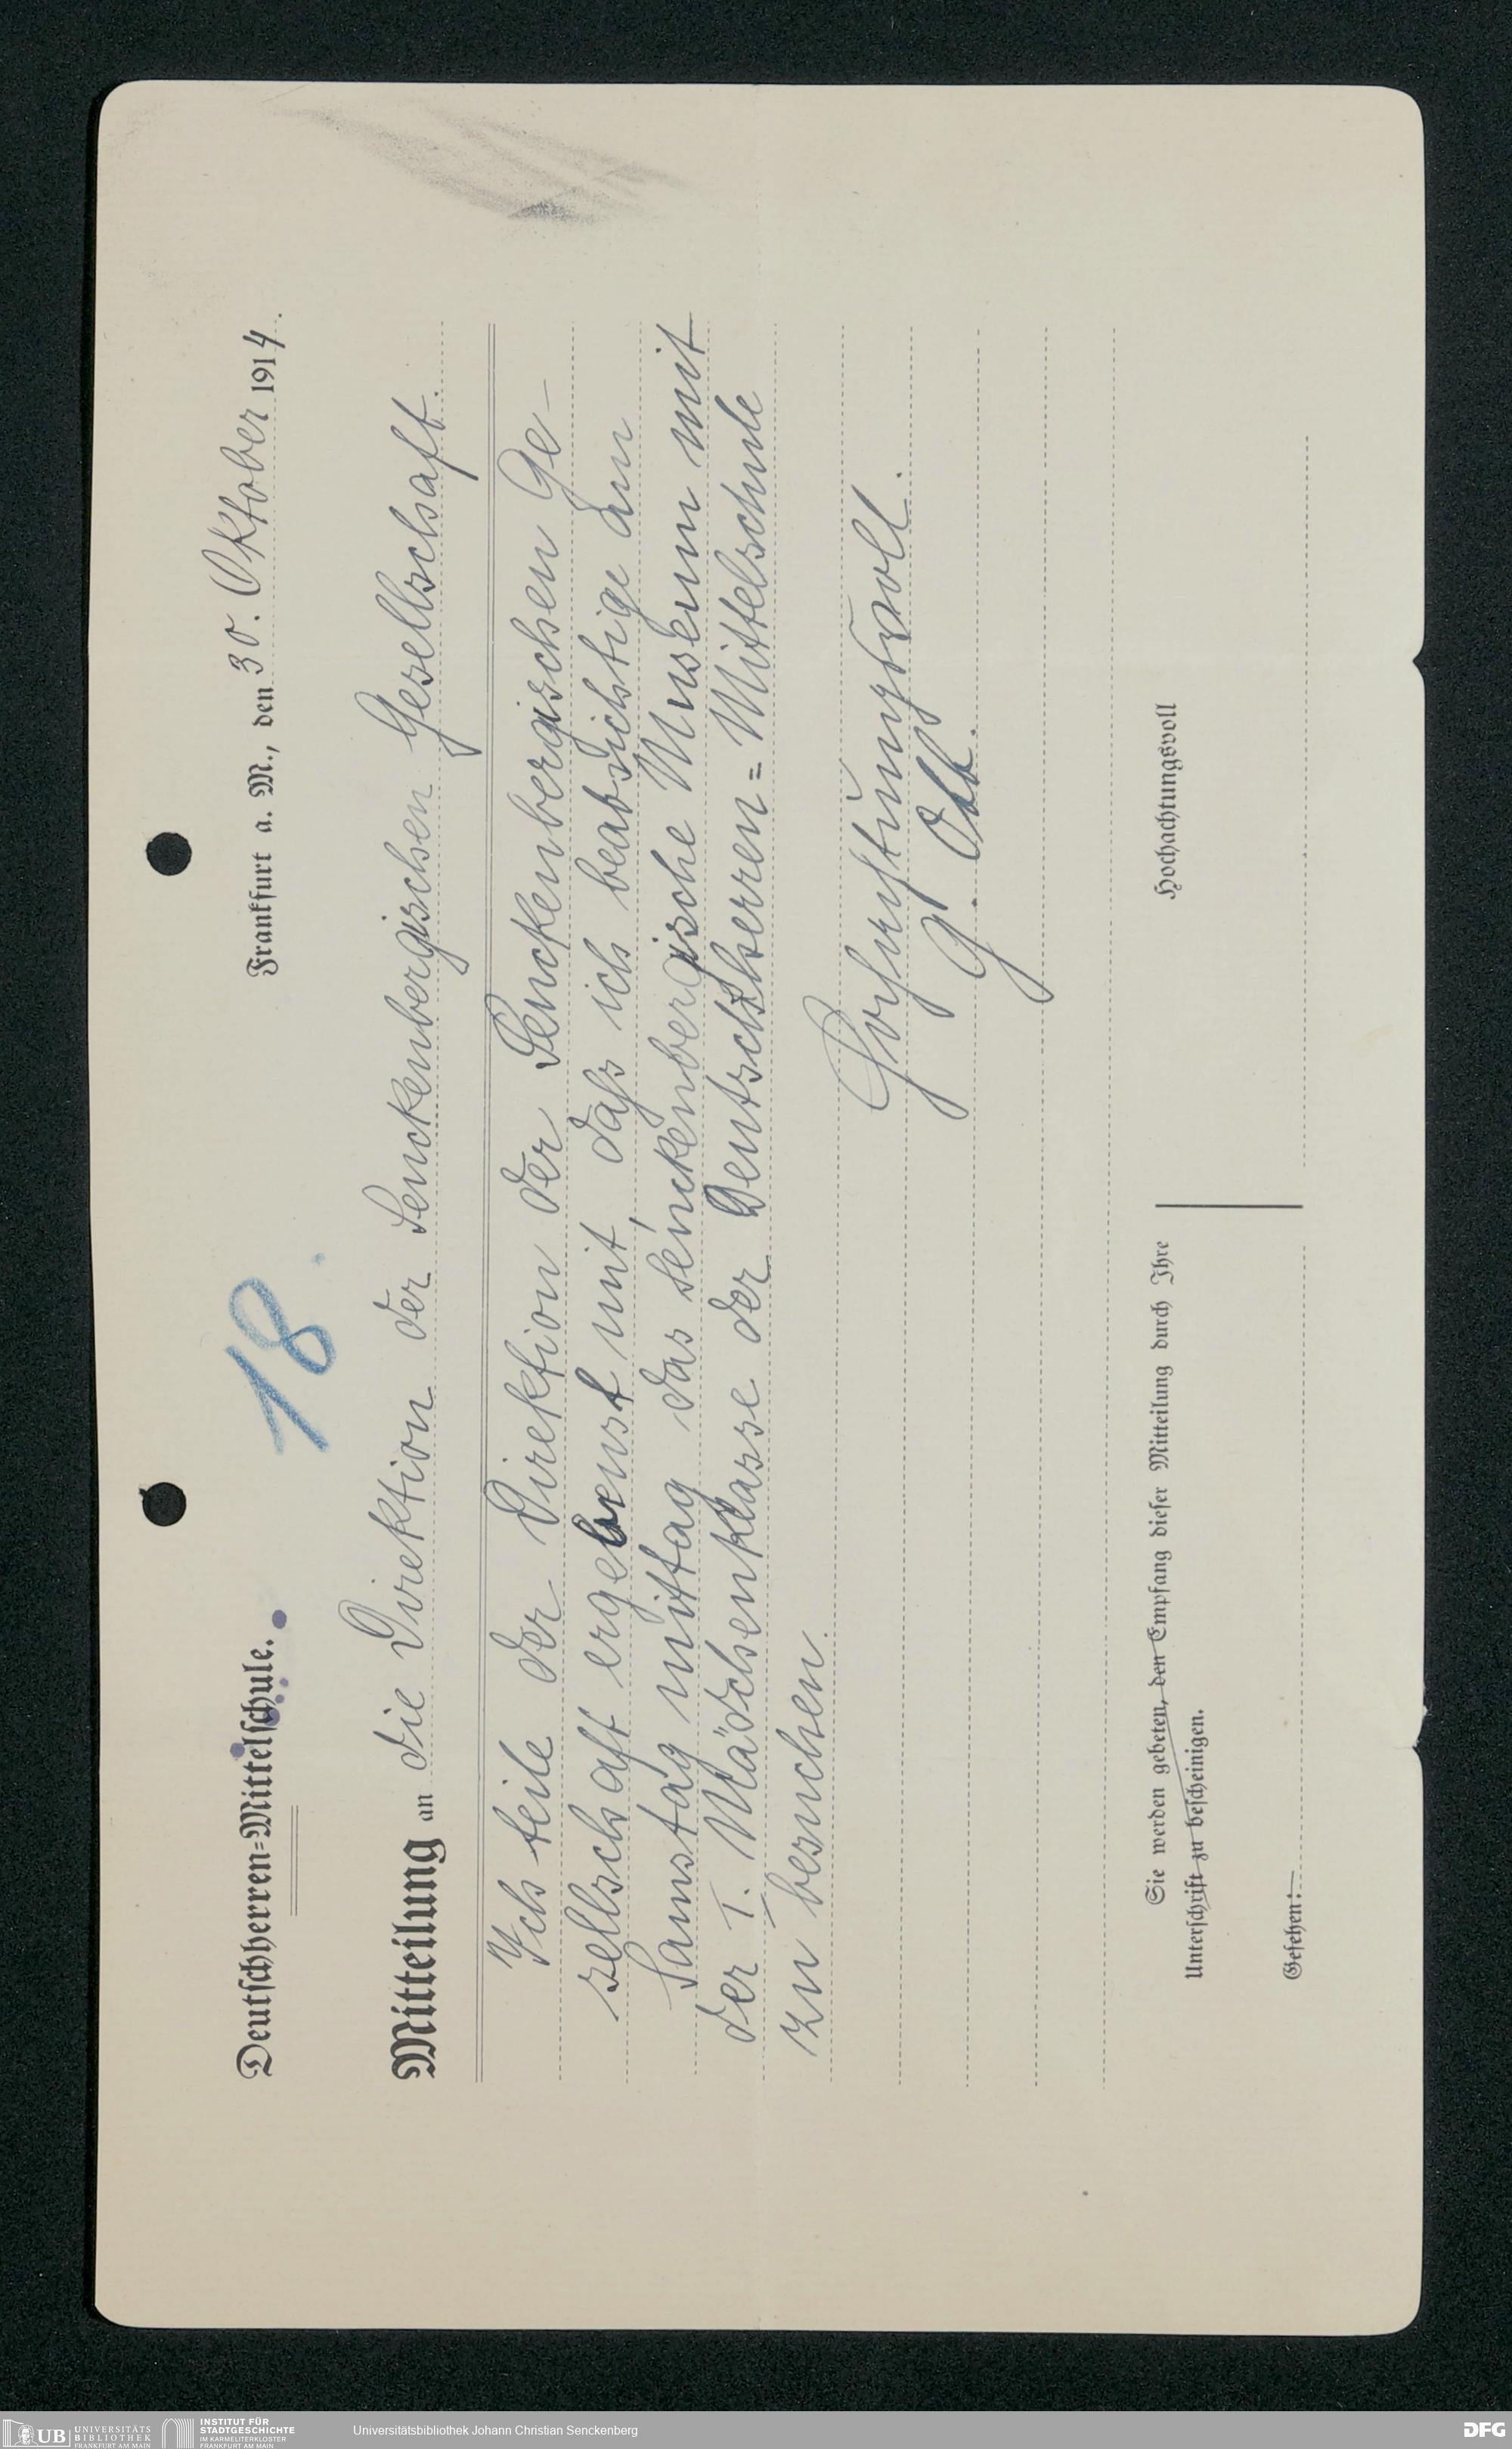 Deutschherren=Mittelschule.
18.
Frankfurt a. M., den 30. Oktober 1914.
Mitteilung an die Direktion der Senckenbergischen Gesellschaft.
Ich teile der Direktion der Senckenbergischen Ge-
sellschaft ergebenst mit, daß ich beabsichtige am
Samstag mittag das Senckenbergische Museum mit
der I. Mädchenklasse der Deutschherren=Mittelschule
zu besuchen.
Hochachtungsvoll.
G. Ott.
Sie werden gebeten, den Empfang dieser Mitteilung durch Ihre
Unterschrift zu bescheinigen.
Hochachtungsvoll
Gesehen:
UB UNIVERSITÄTS
BIBLIOTHEK
FRANKFURT AM MAIN
INSTITUT FÜR
STADTGESCHICHTE
IM KARMELITERKLOSTER
FRANKFURT AM MAIN
Universitätsbibliothek Johann Christian Senckenberg
DFG